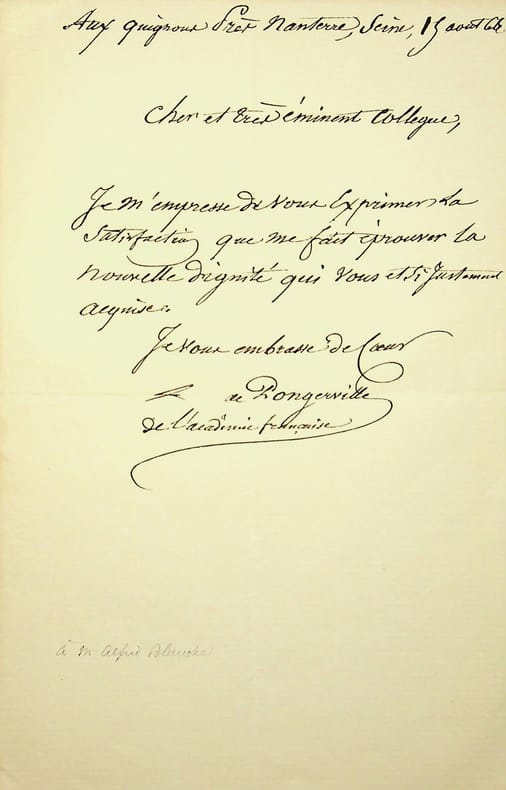 Aux guignous Près Nanterre, Seine, 15 aout
Cher et très éminent Collegue,
Je m'empresse de vous Exprimer La
Satisfaction que me fait éprouver la
nouvelle dignité qui Vous et Si Justement
acquise.
Je vous embrasse de Cœur
de Pongerville
de L'académie française
à Mr Alfred Blanche